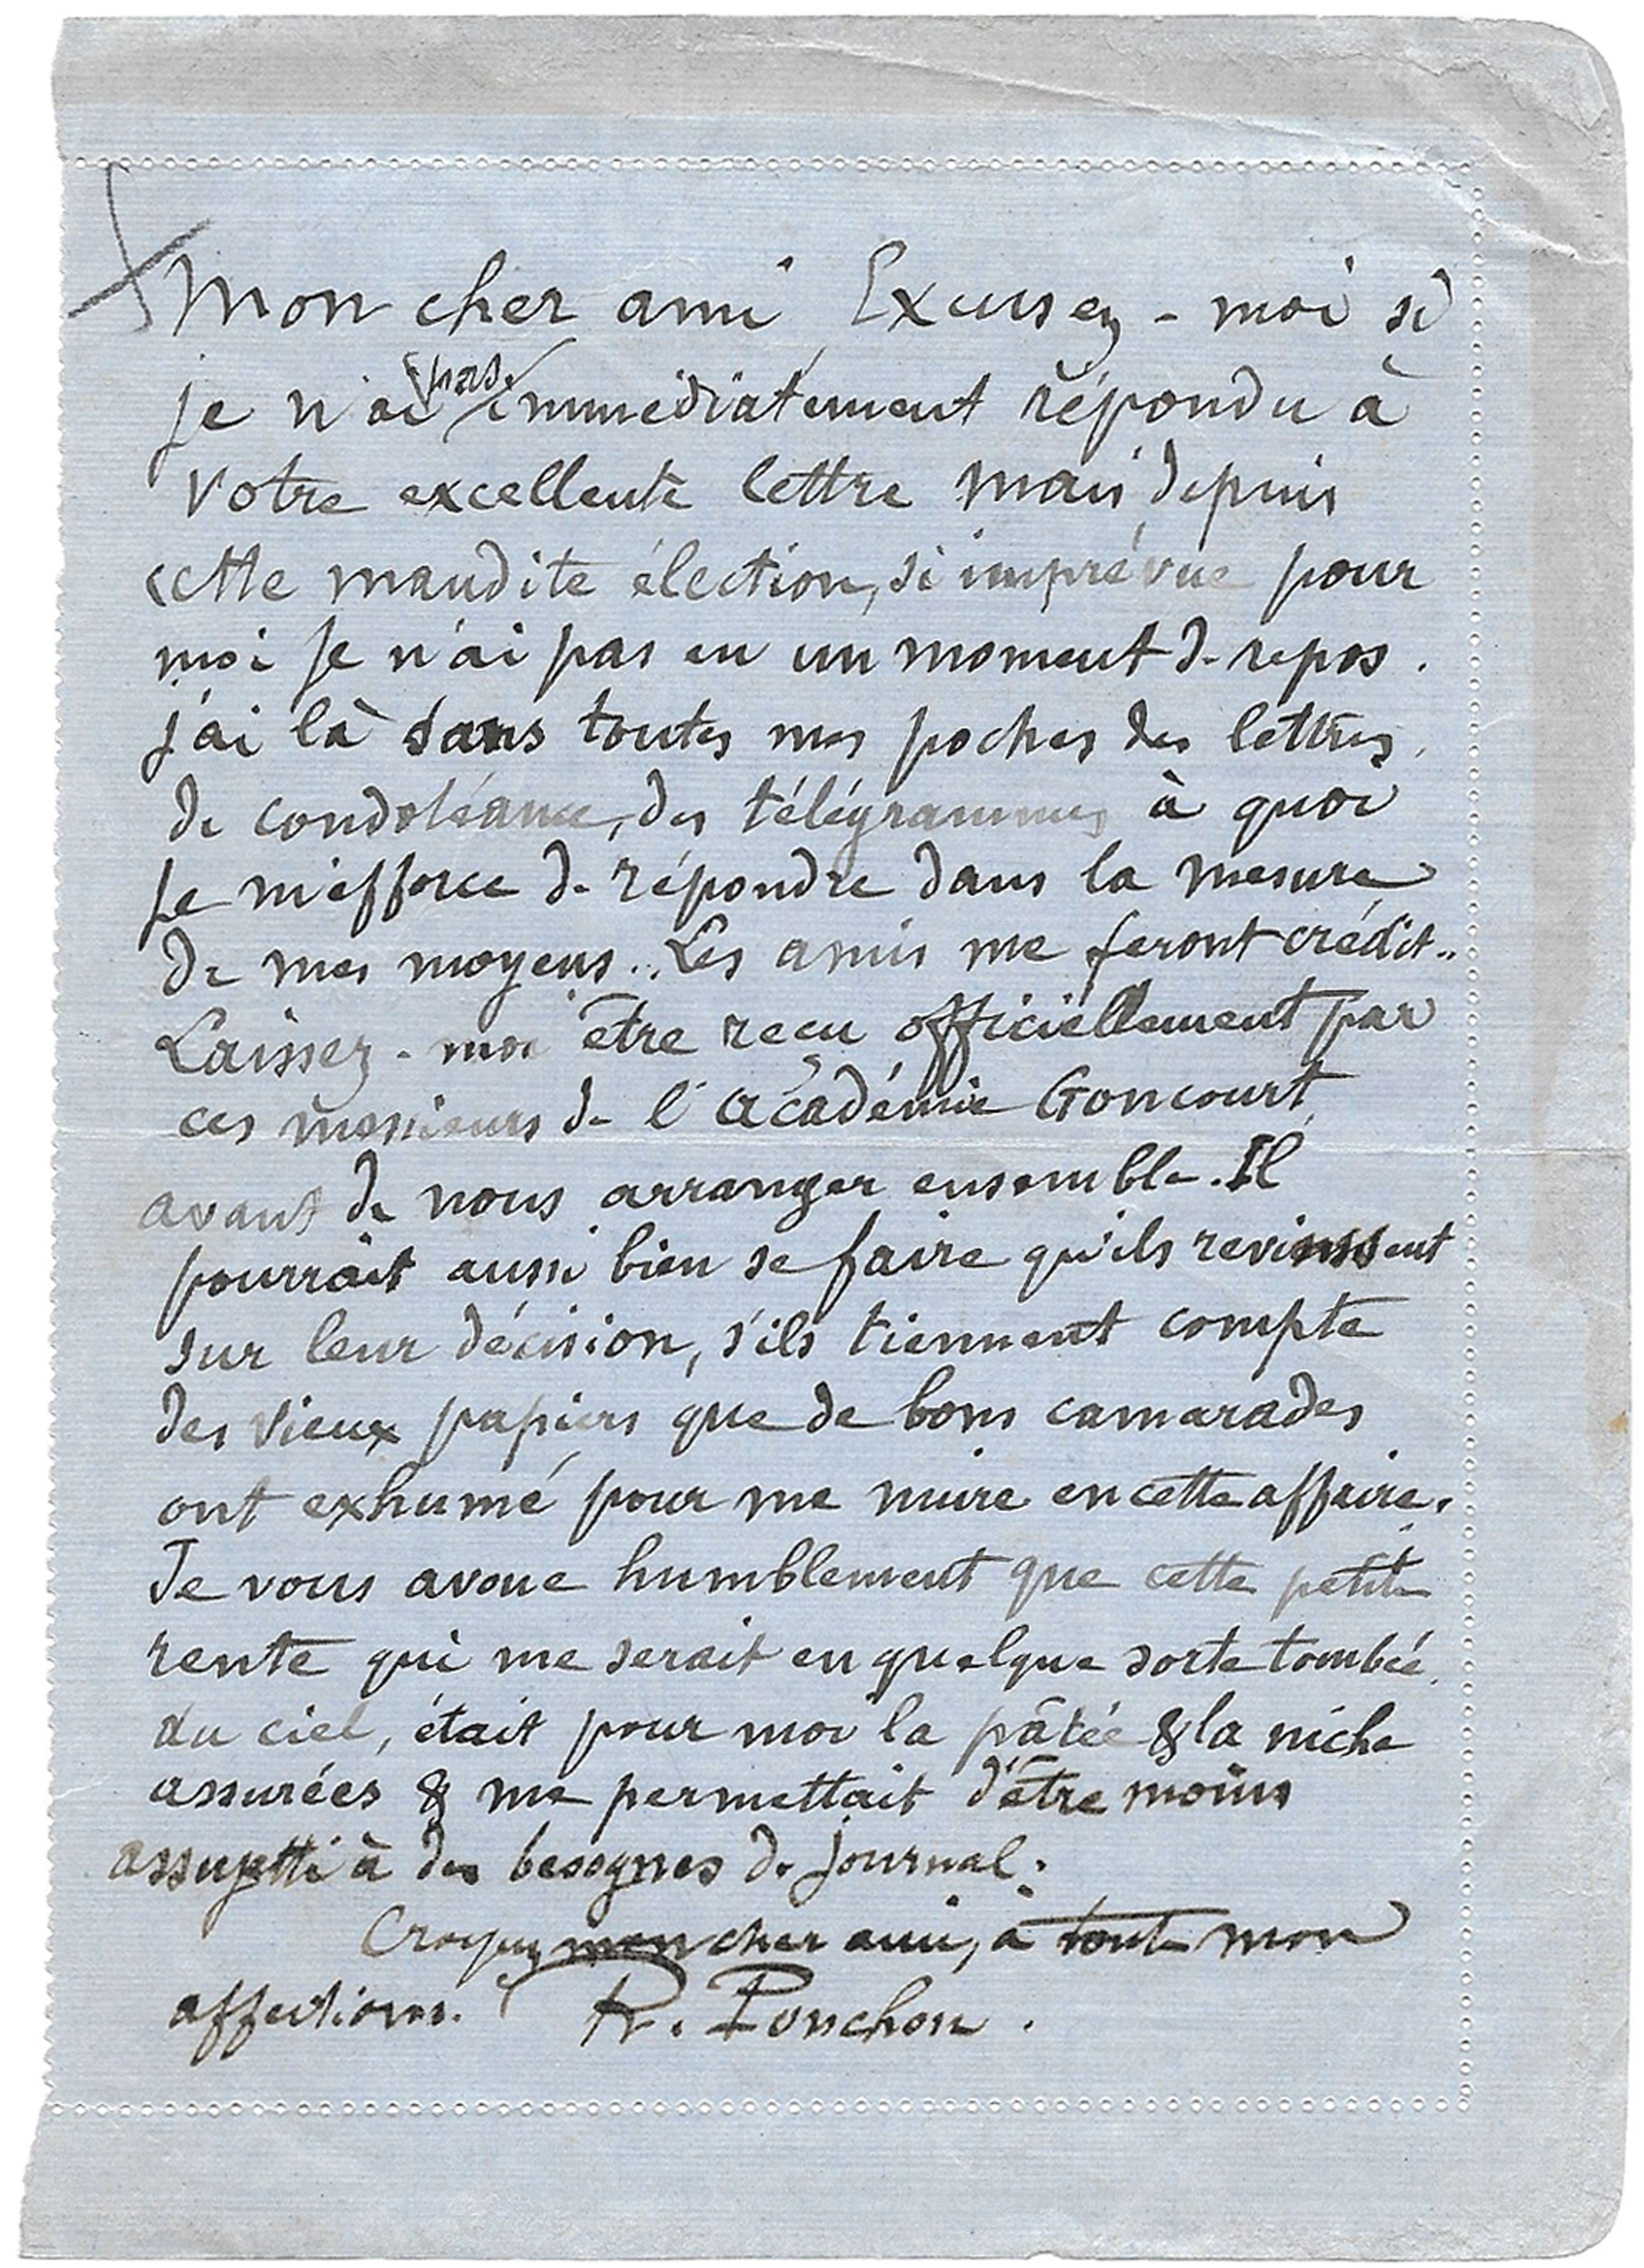 Mon cher ami Excusez-moi si
je n'ai pas immédiatement répondu à
votre excellente lettre mais depuis
cette maudite élection, si imprévue pour
moi je n'ai pas eu un moment de repos.
j'ai là dans toutes mes poches des lettres
de condoléance, des télégrammes à quoi
je m'efforce de répondre dans la mesure
de mes moyens.. Les amis me feront crédit..
Laissez-moi être reçu officiellement par
ces messieurs de l'académie Goncourt
avant de nous arranger ensemble. Il
pourrait aussi bien se faire qu'ils revinssent
sur leur décision, s'ils tiennent compte
des vieux papiers que de bons camarades
ont exhumé pour me nuire en cette affaire.
Je vous avoue humblement que cette petite
rente qui me serait en quelque sorte tombée
du ciel, était pour moi la pâtée & la niche
assurées & me permettait d'être moins
assujetti à des besognes de journal.
Croyez mon cher ami, à toute mon
affection. R. Ponchon.